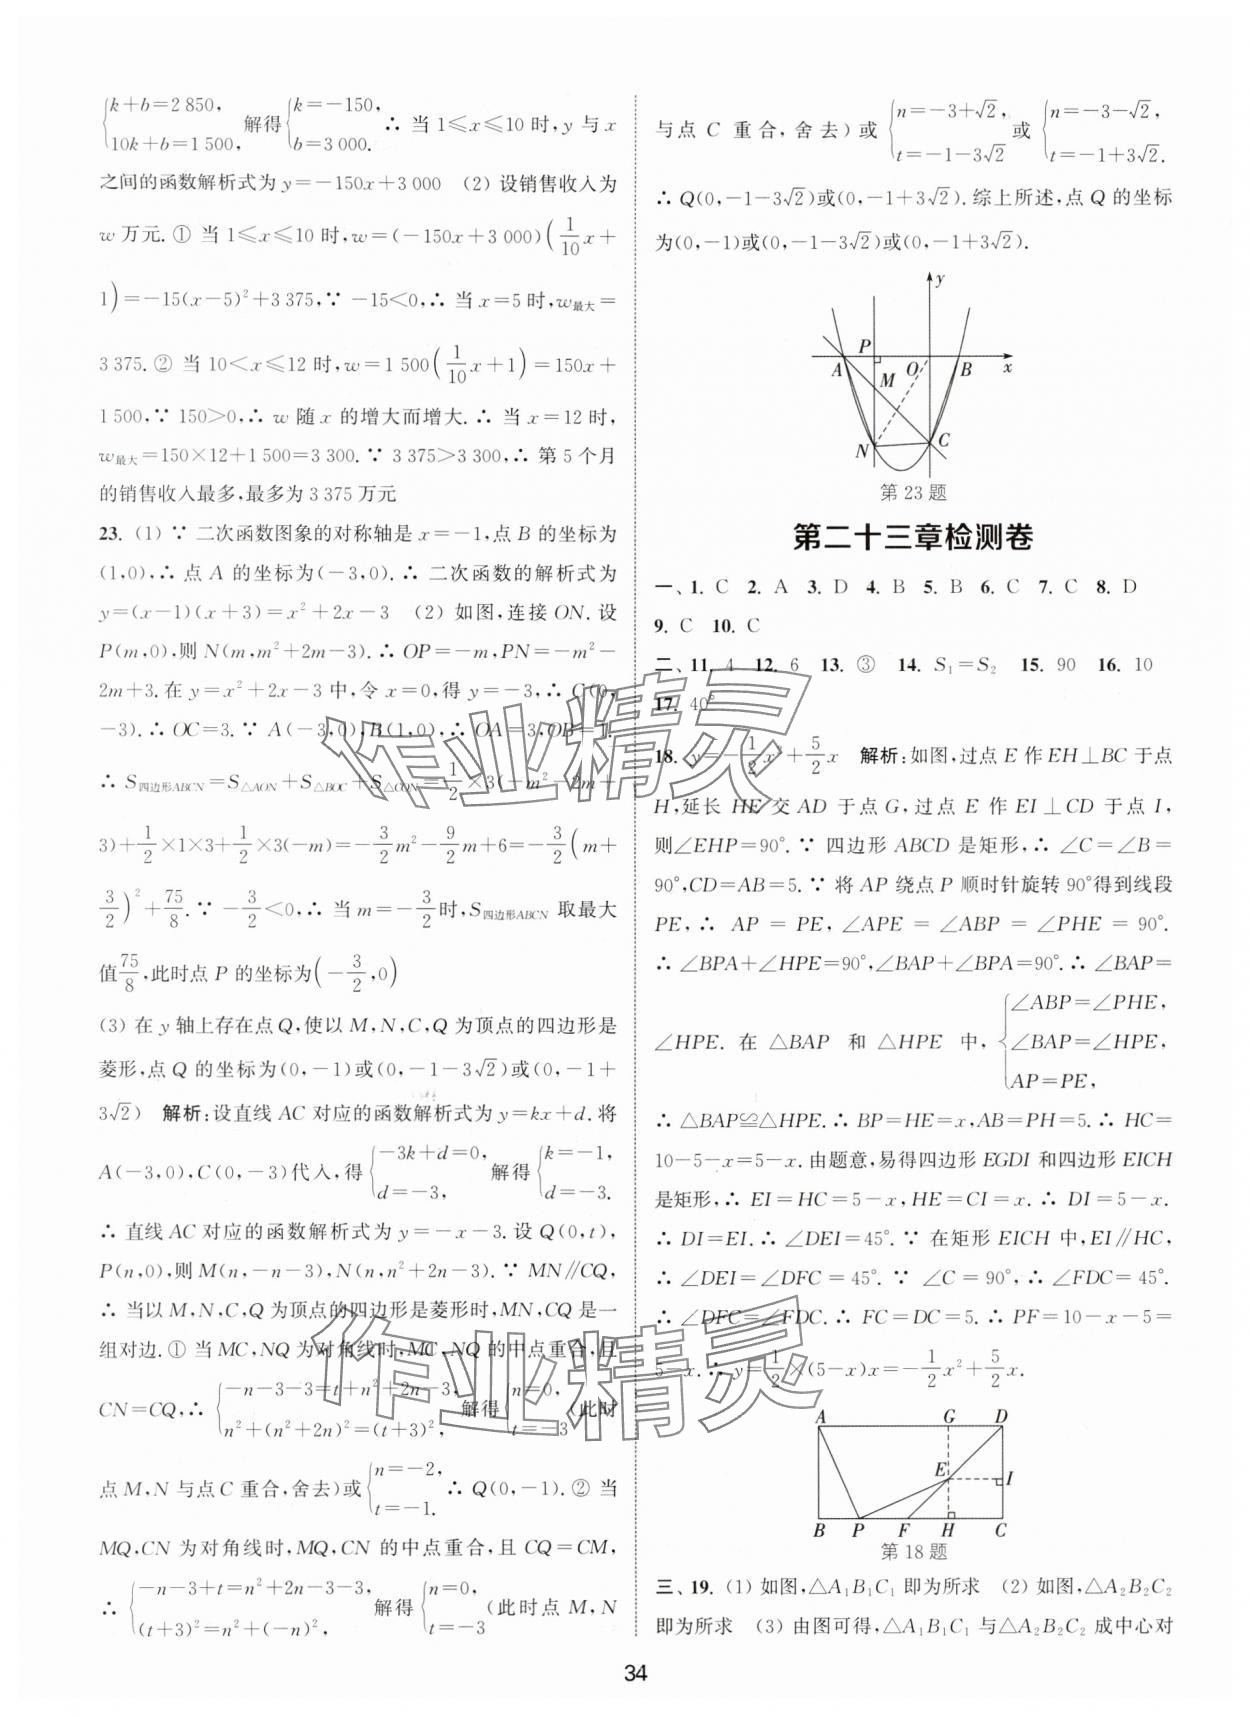 {k+b=2 850, 10k+b=1 500, 解得{k=-150, b=3 000. ∴ 当 1≤x≤10 时,y 与 x
之间的函数解析式为 y=-150x+3 000 (2) 设销售收入为
w 万元.① 当 1≤x≤10 时,w=(-150x+3 000)(1/10x+
1)=-15(x-5)²+3 375,∵ -15<0,∴ 当 x=5 时,w最大=
3 375.② 当 10<x≤12 时,w=1 500(1/10x+1)=150x+
1 500,∵ 150>0,∴ w 随 x 的增大而增大.∴ 当 x=12 时,
w最大=150×12+1 500=3 300.∵ 3 375>3 300,∴ 第 5 个月
的销售收入最多,最多为 3 375 万元
23. (1) ∵ 二次函数图象的对称轴是 x=-1,点 B 的坐标为
(1,0),∴ 点 A 的坐标为(-3,0).∴ 二次函数的解析式为
y=(x-1)(x+3)=x²+2x-3 (2) 如图,连接 ON.设
P(m,0),则 N(m,m²+2m-3).∴ OP=-m,PN=-m²-
2m+3.在 y=x²+2x-3 中,令 x=0,得 y=-3,∴ C(0,
-3).∴ OC=3.∵ A(-3,0),B(1,0),∴ OA=3,OB=1.
∴ S四边形ABCN=S△AON+S△BOC+S△CON=1/2×3(-m²-2m+
3)+1/2×1×3+1/2×3(-m)=-3/2m²-9/2m+6=-3/2(m+
3/2)²+75/8.∵ -3/2<0,∴ 当 m=-3/2时,S四边形ABCN 取最大
值75/8,此时点 P 的坐标为(-3/2,0)
(3) 在 y 轴上存在点 Q,使以 M,N,C,Q 为顶点的四边形是
菱形,点 Q 的坐标为(0,-1)或(0,-1-3√2)或(0,-1+
3√2) 解析:设直线 AC 对应的函数解析式为 y=kx+d.将
A(-3,0),C(0,-3)代入,得{-3k+d=0, d=-3, 解得{k=-1, d=-3.
∴ 直线 AC 对应的函数解析式为 y=-x-3.设 Q(0,t),
P(n,0),则 M(n,-n-3),N(n,n²+2n-3).∵ MN∥CQ,
∴ 当以 M,N,C,Q 为顶点的四边形是菱形时,MN,CQ 是一
组对边.① 当 MC,NQ 为对角线时,MC,NQ 的中点重合,且
CN=CQ,∴ {-n-3-3=t+n²+2n-3, n²+(n²+2n)²=(t+3)², 解得{n=0, t=-3 (此时
点 M,N 与点 C 重合,舍去)或{n=-2, t=-1. ∴ Q(0,-1).② 当
MQ,CN 为对角线时,MQ,CN 的中点重合,且 CQ=CM,
∴ {-n-3+t=n²+2n-3-3, (t+3)²=n²+(-n)², 解得{n=0, t=-3 (此时点 M,N
与点 C 重合,舍去)或{n=-3+√2, t=-1-3√2 或{n=-3-√2, t=-1+3√2.
∴ Q(0,-1-3√2)或(0,-1+3√2).综上所述,点 Q 的坐标
为(0,-1)或(0,-1-3√2)或(0,-1+3√2).
y
P
A
O
B
x
M
N
C
第 23 题
第二十三章检测卷
一、1. C 2. A 3. D 4. B 5. B 6. C 7. C 8. D
9. C 10. C
二、11. 4 12. 6 13. ③ 14. S₁=S₂ 15. 90 16. 10
17. 40°
18. y=-1/2x²+5/2x 解析:如图,过点 E 作 EH⊥BC 于点
H,延长 HE 交 AD 于点 G,过点 E 作 EI⊥CD 于点 I,
则∠EHP=90°.∵ 四边形 ABCD 是矩形,∴ ∠C=∠B=
90°,CD=AB=5.∵ 将 AP 绕点 P 顺时针旋转 90°得到线段
PE,∴ AP=PE,∠APE=∠ABP=∠PHE=90°.
∴ ∠BPA+∠HPE=90°,∠BAP+∠BPA=90°.∴ ∠BAP=
∠HPE.在 △BAP 和 △HPE 中,{∠ABP=∠PHE, ∠BAP=∠HPE, AP=PE,
∴ △BAP≌△HPE.∴ BP=HE=x,AB=PH=5.∴ HC=
10-5-x=5-x.由题意,易得四边形 EGDI 和四边形 EICH
是矩形,∴ EI=HC=5-x,HE=CI=x.∴ DI=5-x.
∴ DI=EI.∴ ∠DEI=45°.∵ 在矩形 EICH 中,EI∥HC,
∴ ∠DEI=∠DFC=45°.∵ ∠C=90°,∴ ∠FDC=45°.
∴ ∠DFC=∠FDC.∴ FC=DC=5.∴ PF=10-x-5=
5-x.∴ y=1/2×(5-x)x=-1/2x²+5/2x.
A
G
D
E
I
B
P
F
H
C
第 18 题
三、19. (1) 如图,△A₁B₁C₁ 即为所求 (2) 如图,△A₂B₂C₂
即为所求 (3) 由图可得,△A₁B₁C₁ 与△A₂B₂C₂ 成中心对
34
作业精灵
作业精灵